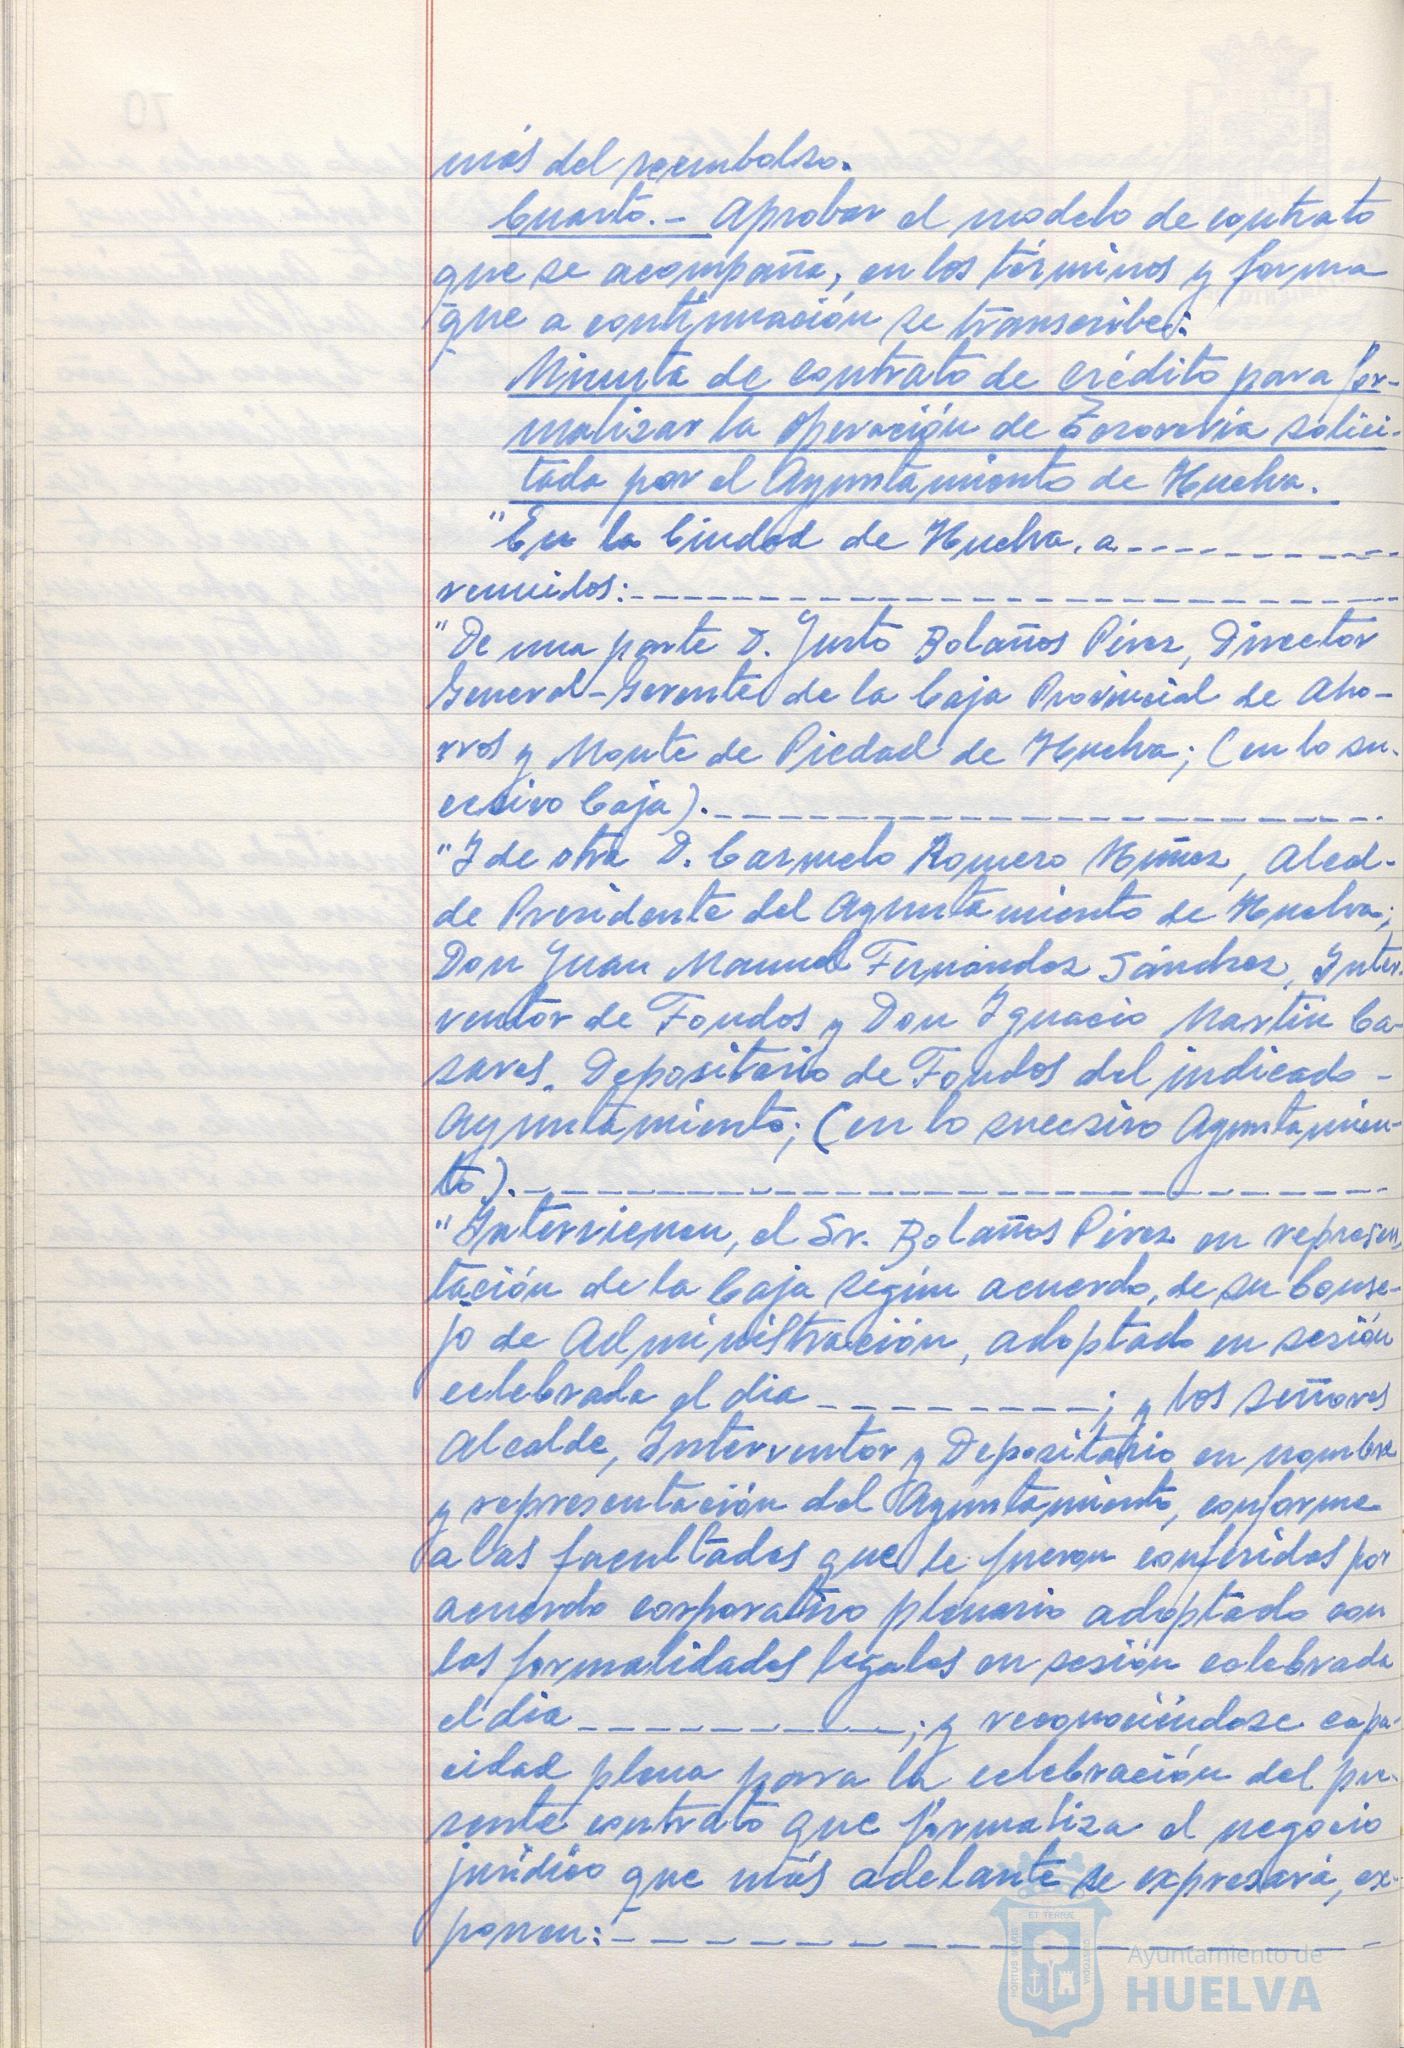 más del reembolso.
Cuarto.- Aprobar el modelo de contrato
que se acompaña, en los términos y forma
que a continuación se transcribe:
Minuta de contrato de crédito para for-
malizar la operación de Tesorería solici-
tada por el Ayuntamiento de Huelva.
"En la Ciudad de Huelva, a
reunidos:
"De una parte D. Justo Bolaños Pérez, Director
General-Gerente de la Caja Provincial de Aho-
rros y Monte de Piedad de Huelva; (en lo su-
cesivo Caja).
"Y de otra D. Carmelo Romero Núñez, Alcal-
de Presidente del Ayuntamiento de Huelva;
Don Juan Manuel Fernández Sánchez, Inter-
ventor de Fondos y Don Ignacio Martín Ca-
sares, Depositario de Fondos del indicado -
Ayuntamiento; (en lo sucesivo Ayuntamien-
to).
"Intervienen, el Sr. Bolaños Pérez en represen-
tación de la Caja según acuerdo, de su Conse-
jo de Administración, adoptado en sesión
celebrada el dia ; y los señores
Alcalde, Interventor y Depositario en nombre
y representación del Ayuntamiento, conforme
a las facultades que le fueron conferidas por
acuerdo corporativo plenario adoptado con
las formalidades legales en sesión celebrada
el dia ; y reconociéndose capa-
cidad plena para la celebración del pre-
sente contrato que formaliza el negocio
jurídico que más adelante se expresará, ex-
ponen:
Ayuntamiento de
HUELVA